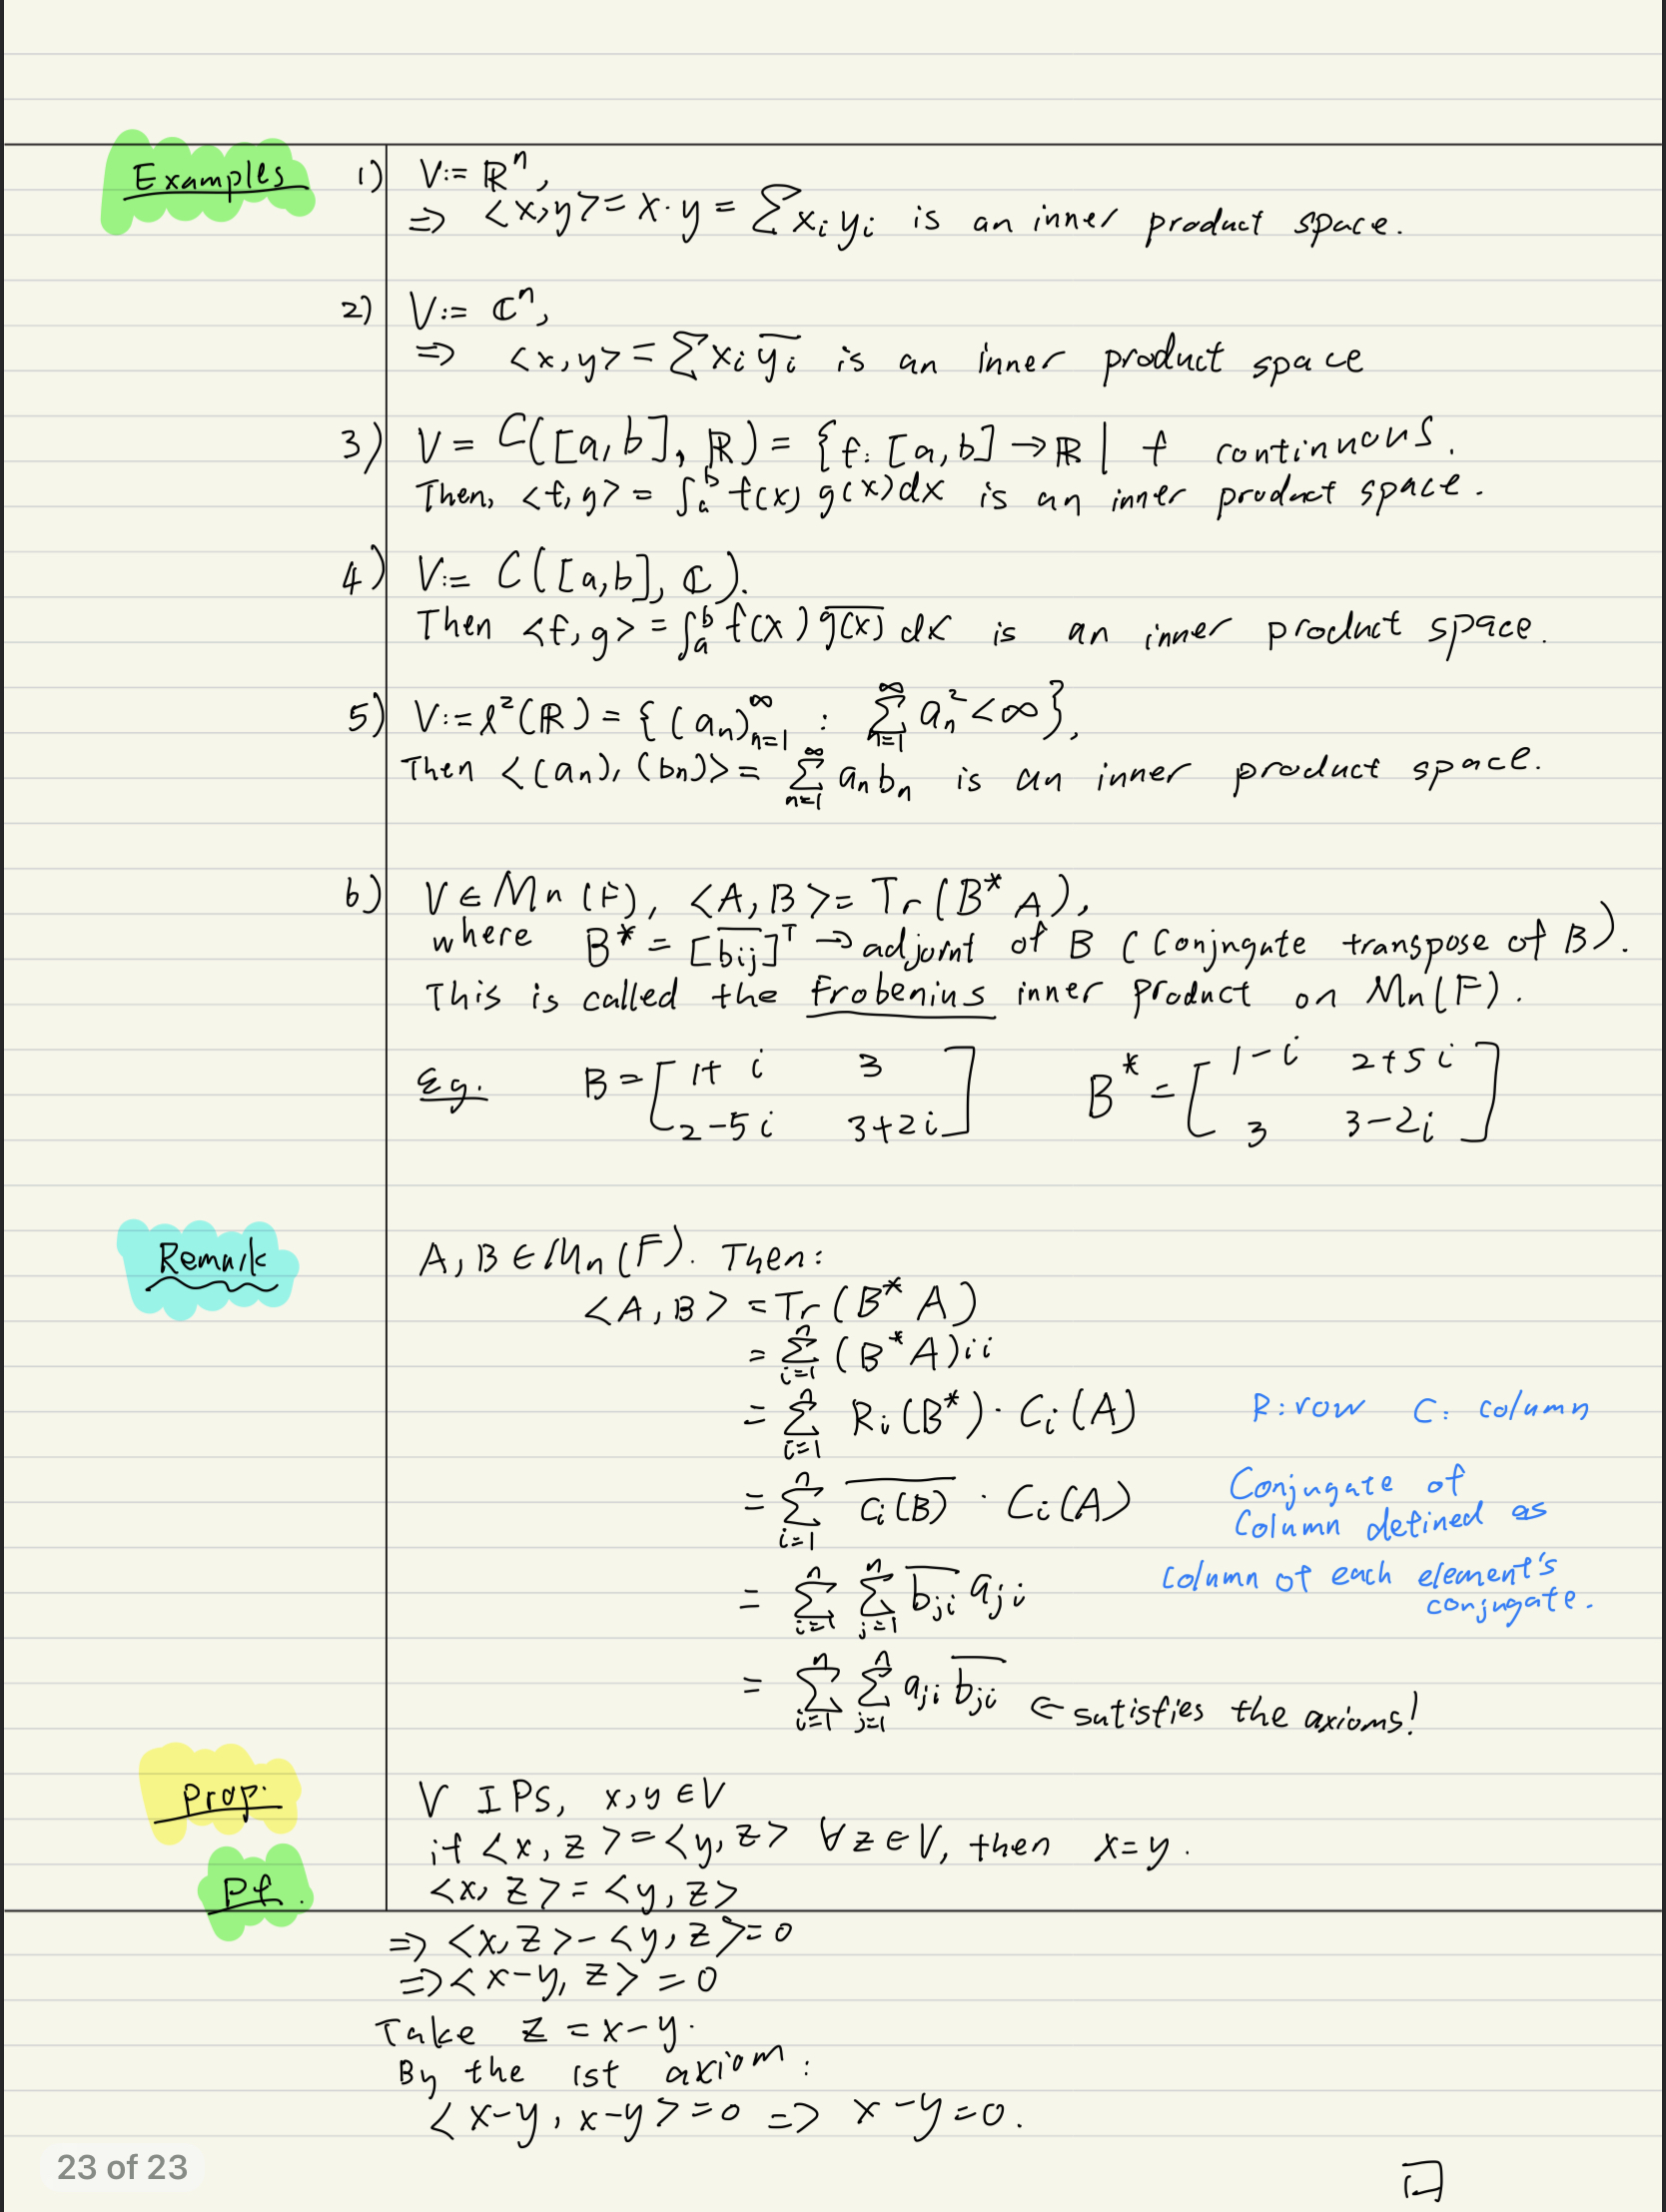 Examples 1) V:= ℝⁿ,
⇒ <x,y> = x·y = Σ xᵢ yᵢ is an inner product space.
2) V:= ℂⁿ,
⇒ <x,y> = Σ xᵢ y̅ᵢ is an inner product space
3) V = C([a,b], ℝ) = {f: [a,b] → ℝ | f continuous.
Then, <f,g> = ∫ₐᵇ f(x) g(x) dx is an inner product space.
4) V:= C([a,b], ℂ).
Then <f,g> = ∫ₐᵇ f(x) \overline{g(x)} dx is an inner product space.
5) V:= ℓ²(ℝ) = { (aₙ)_{n=1}^∞ : Σ_{n=1}^∞ aₙ² < ∞ },
Then <(aₙ), (bₙ)> = Σ_{n=1}^∞ aₙ bₙ is an inner product space.
6) V ∈ Mn (F), <A, B> = Tr (B* A),
where B* = [\overline{bij}]ᵀ → adjoint of B (Conjugate transpose of B).
This is called the Frobenius inner product on Mn(F).
Eg. B = [1+i 3 B* = [1-i 2+5i
2-5i 3+2i] 3 3-2i]
Remark A, B ∈ Mn (F). Then:
<A, B> = Tr (B* A)
= Σ_{i=1}^n (B* A)ii
= Σ_{i=1}^n Ri (B*) · Ci (A) R: row C: column
= Σ_{i=1}^n \overline{Ci (B)} · Ci (A) Conjugate of
column defined as
= Σ_{i=1}^n Σ_{j=1}^n \overline{bji} aji column of each element's
conjugate.
= Σ_{i=1}^n Σ_{j=1}^n aji \overline{bji} ← satisfies the axioms!
Prop. V IPS, x,y ∈ V
if <x, z> = <y, z> ∀ z ∈ V, then x = y.
Pf. <x, z> = <y, z>
⇒ <x, z> - <y, z> = 0
⇒ <x-y, z> = 0
Take z = x-y.
By the 1st axiom:
<x-y, x-y> = 0 ⇒ x-y = 0.
23 of 23
□